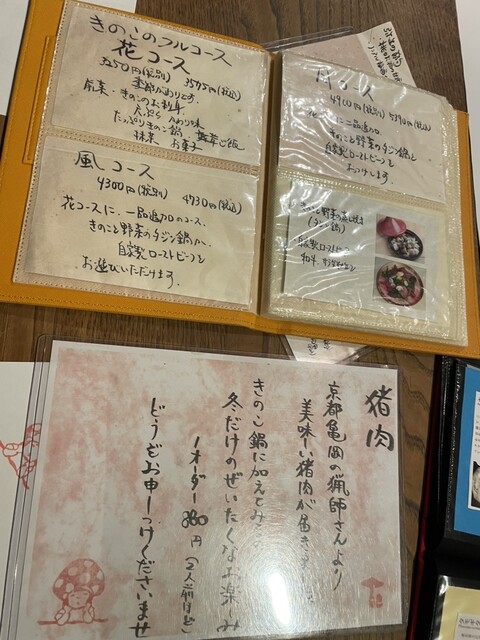 きのこのフルコース
花コース
3250円(税別) 3575円(税込)
季節がわりです。
前菜・きのこのお刺身
天ぷら
たっぷりきのこ鍋
抹茶 お菓子
風コース
4300円(税別) 4730円(税込)
花コースに、一品追加のコース。
きのこと野菜のタジン鍋か、
自家製ローストビーフと
お選びいただけます。
コース
4900円(税別) 5390円(税込)
花コースに二品追加
きのこと野菜のタジン鍋と
自家製ローストビーフを
おつけします。
きのこと野菜の蒸し焼き
(タジン鍋)
自家製ローストビーフ
猪肉
京都亀岡の猟師さんより
美味い猪肉が届き
きのこ鍋に加えてみ
冬だけのぜいたくなお楽しみ
1オーダー 880円 (2人前ほど)
どうぞお申しつけくださいませ